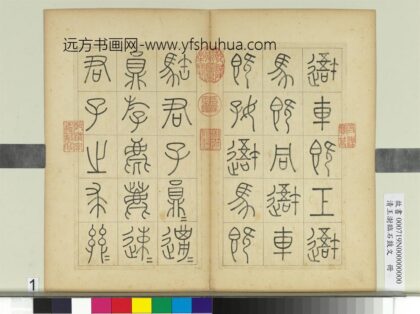 远方书画网-www.yfshuhua.com
䢒車既工䢒
馬既同䢒車
既好䢒馬既
君子員=邋=
員斿麀鹿速=
君子之求
故書000719N000000000
清王澍臨石鼓文 冊
1